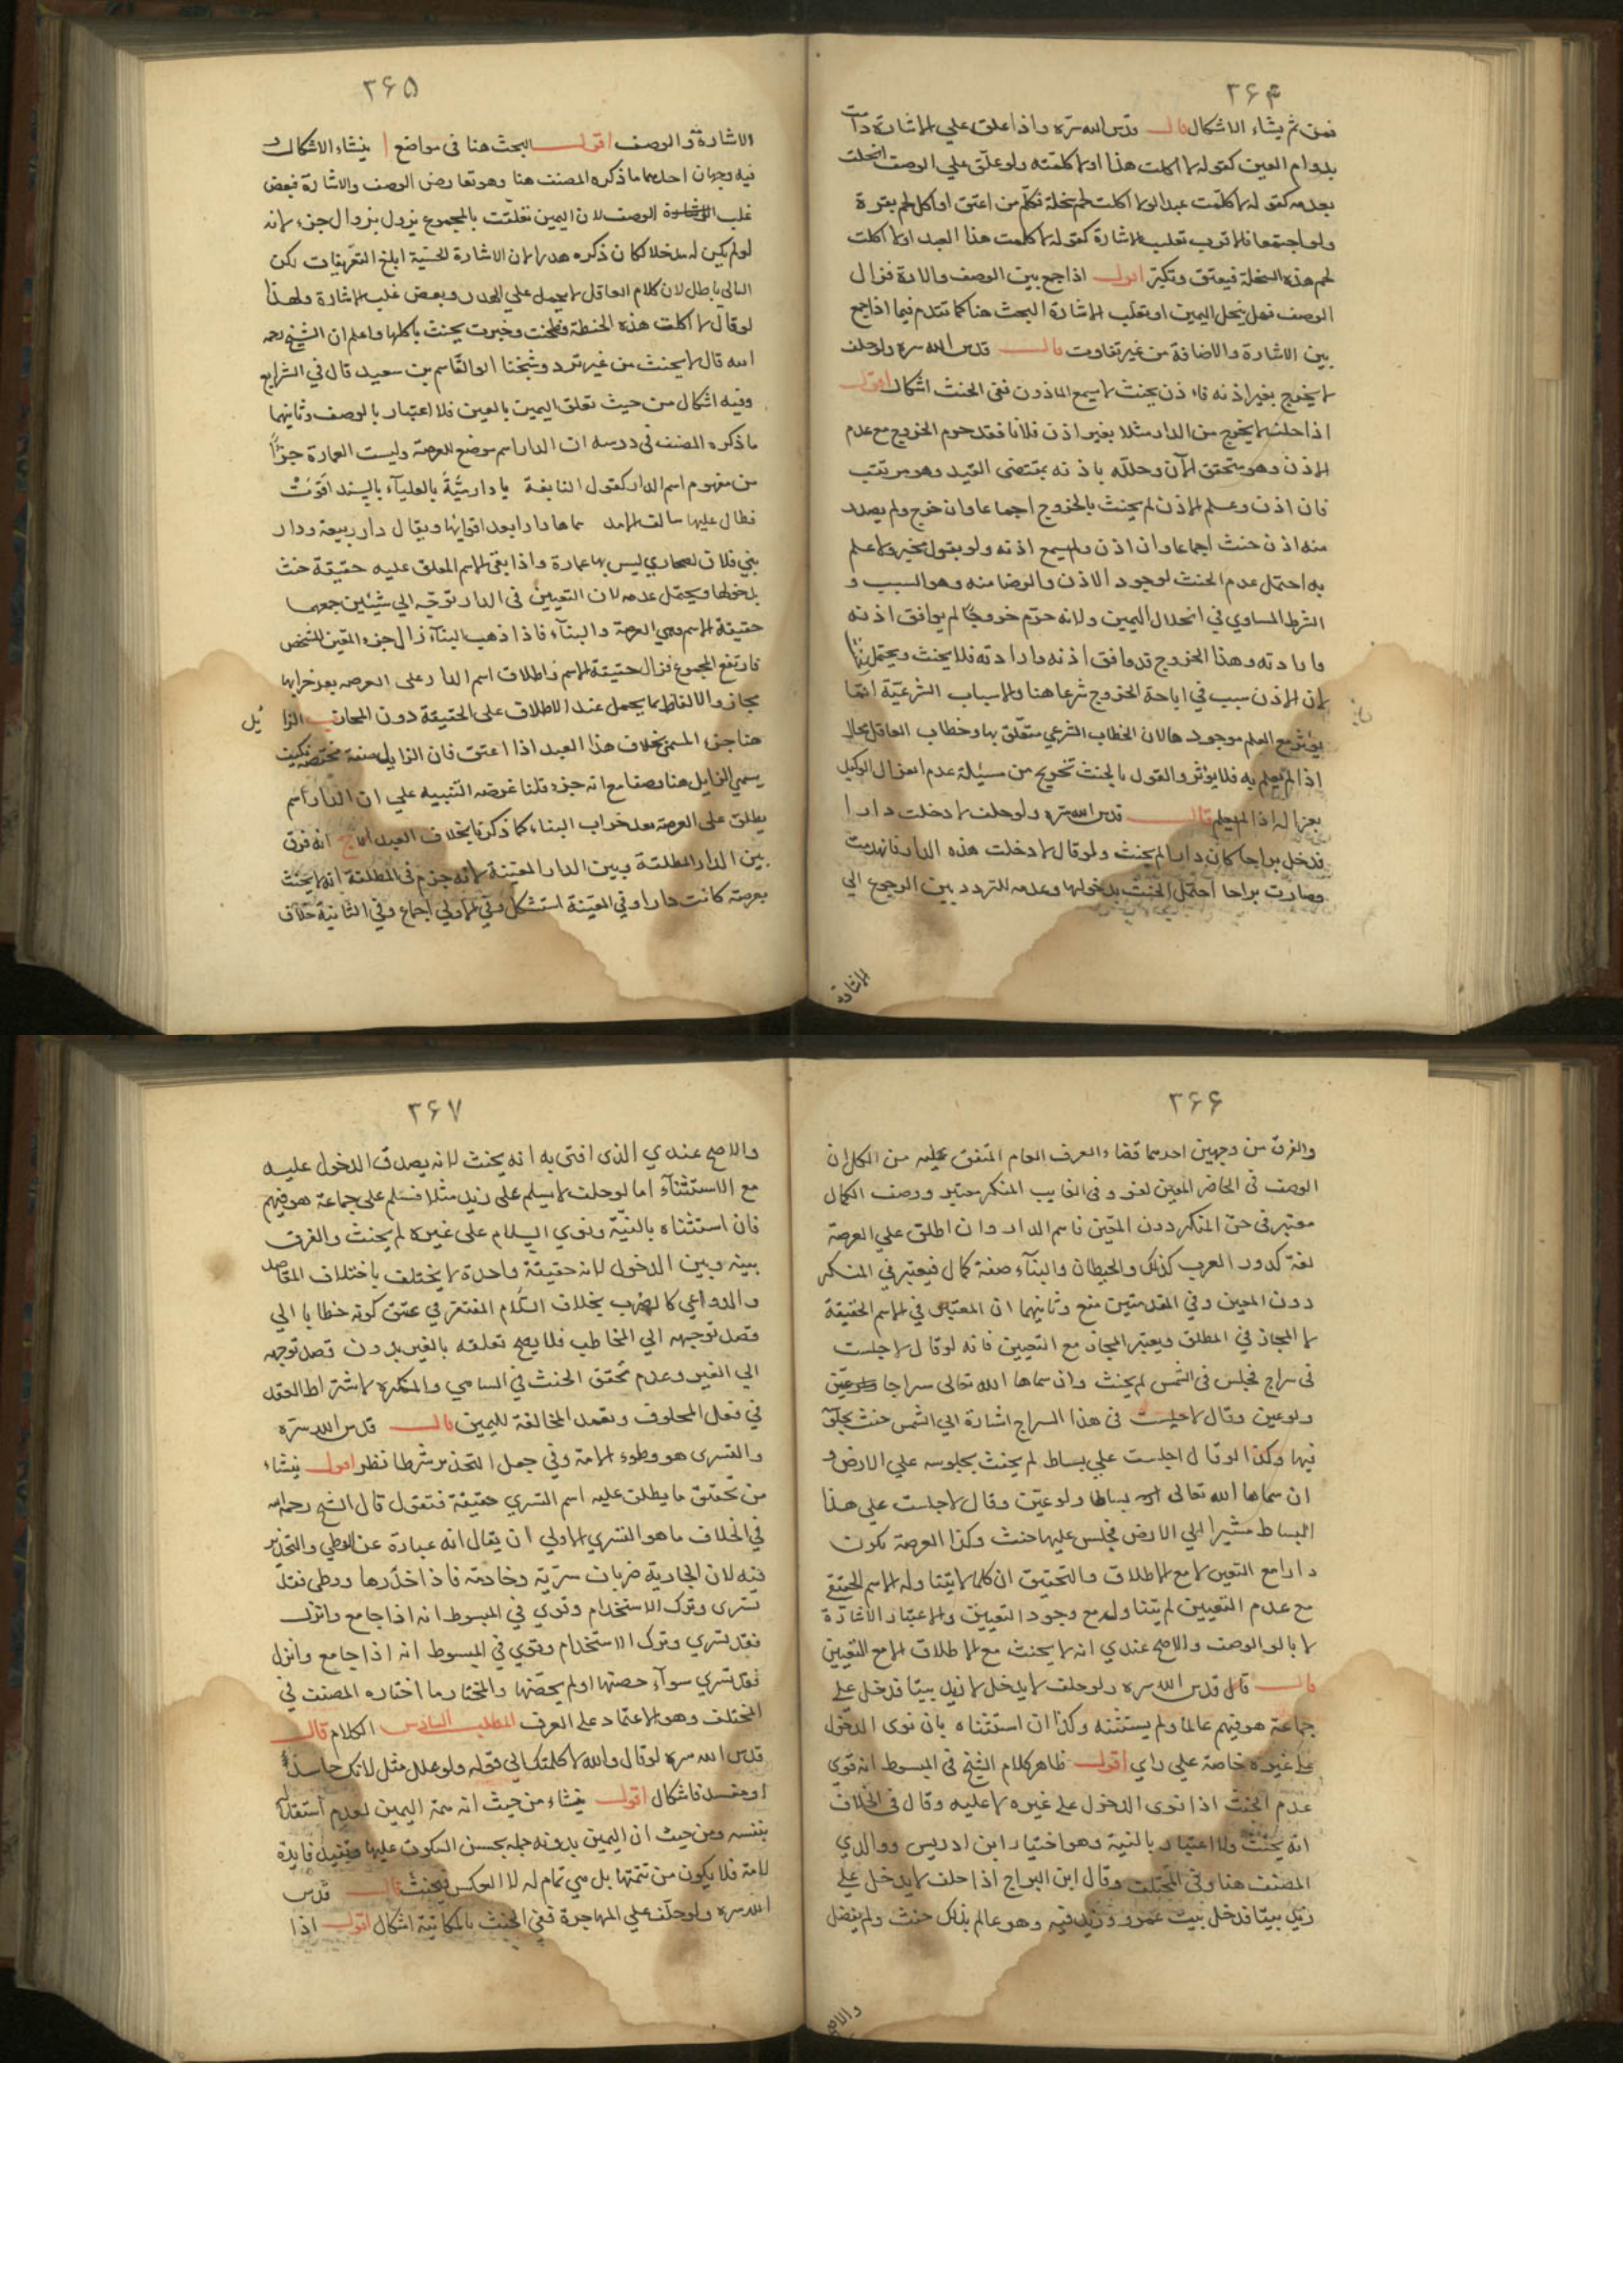 ۳۶۴
فمن ثم ينشاء الاشكال قال قدس الله سره واذا علق علي الاشارة دامت
بدوام العين كقوله لا اكلت هذا او لا كلمته ولو علق علي الوصف انحلت
بعدمه كقوله لا كلمت عبدا او لا اكلت لحم سخلة فكلم من اعتق او اكل لحم بقرة
ولو اجتمعا فالاقرب تغليب الاشارة كقوله لا كلمت هذا العبد او لا اكلت
لحم هذه السخلة فيعتق وتكبر اقول اذا جمع بين الوصف والاشارة فزال
الوصف فهل ينحل اليمين او تغلب الاشارة البحث هنا كما تقدم فيما اذا جمع
بين الاشارة والاضافة من غير تفاوت قال قدس الله سره ولو حلف
لا يخرج بغير اذنه فاذن بحيث لا يسمع الماذون ففي الحنث اشكال اقول
اذا حلف لا يخرج من الدار مثلا بغير اذن فلانا فقد حرم الخروج مع عدم
الاذن وهو متحقق الآن وحلله باذنه بمقتضى القيد وهو مرتقب
فان اذن وعلم الاذن لم يحنث بالخروج اجماعا وان خرج ولم يصدر
منه اذن حنث اجماعا وان اذن ولم يسمع اذنه ولو بقول مخبر ولا علم
به احتمل عدم الحنث لوجود الاذن والرضا منه وهو السبب و
الشرط المساوي في انحلال اليمين ولانه حرم خروجا لم يوافق اذنه
وارادته وهذا الخروج قد وافق اذنه وارادته فلا يحنث ويحتمل
لان الاذن سبب في اباحة الخروج شرعا هنا والاسباب الشرعية انما
يؤثر مع العلم موجود هالان الخطاب الشرعي متعلق بها وخطاب العاقل محال
اذا لم يعلم به فلا يؤثر والقول بالحنث تخريج من مسئلة عدم انعزال الوكيل
بعزاله اذا لم يعلم قال قدس الله سره ولو حلف لا دخلت دارا
فدخل براحا كان دارا لم يحنث ولو قال لا دخلت هذه الدار فانهدمت
وصارت براحا احتمل الحنث بدخولها وعدمه للتردد بين الرجوع الي
الاشارة
۳۶۵
الاشارة والوصف اقول البحث هنا في مواضع ا ينشاء الاشكال و
فيه وجهان احدهما ما ذكره المصنف هنا وهو تعارض الوصف والاشارة فبعض
غلب الوصف لان اليمين تعلقت بالمجموع يزول بزوال جزء لانه
لو لم يكن له مدخلا لكان ذكره هدرا لان الاشارة الحسية ابلغ التعريفات لكن
التالي باطل لان كلام العاقل لا يحمل علي الهدر وبعض غلب الاشارة ولهذا
لو قال لا اكلت هذه الحنطة فطحنت وخبزت يحنث باكلها واعلم ان الشيخ رحمه
الله قال لا يحنث من غير تردد وشيخنا ابو القاسم بن سعيد قال في الشرايع
وفيه اشكال من حيث تعلق اليمين بالعين فلا اعتبار بالوصف وثانيهما
ما ذكره المصنف في درسه ان الدار اسم موضع للعرصة وليست العمارة جزءا
من مفهوم اسم الدار كقول النابغة يا دار مية بالعلياء بالسند اقوت
فطال عليها سالف الامد سماها دارا بعد اقوائها ويقال دار ربيعة ودار
بني فلان لصحاري ليس بها عمارة واذا بقي الاسم المعلق عليه حقيقة حنث
بدخولها ويحتمل عدمه لان التعيين في الدار توجه الي شيئين جمعهما
حقيقة الاسم وهي العرصة والبناء فاذا ذهب البناء زال جزء المعين المشخص
فارتفع المجموع فزال حقيقة الاسم واطلاق اسم الدار على العرصه بعد خرابها
مجاز والالفاظ انما يحمل عند الاطلاق على الحقيقة دون المجاز ب الزايل
هنا جزء المسمى بخلاف هذا العبد اذا اعتق فان الزايل صفة مختصة فكيف
يسمي الزايل هنا وصفا مع انه جزء قلنا غرضه التنبيه علي ان الدار اسم
يطلق على العرصة بعد خراب البناء كما ذكرنا بخلاف العبد انه فرق
بين الدار المطلقة وبين الدار المعينة لانه جزم في المطلقة انه لا يحنث
بعرصة كانت دارا وفي المعينة استشكل وفي الاولي اجماع وفي الثانية خلاف
۳۶۶
والفرق من وجهين احدهما قضاء العرف العام المتفق عليه من الكل ان
الوصف في الحاضر المعين لغو وفي الغايب المنكر معتبر ووصف الكمال
معتبر في حق المنكر دون المعين فاسم الدار وان اطلق علي العرصة
لغة كدور العرب كذلك والحيطان والبناء صفة كمال فيعتبر في المنكر
دون المعين وفي المقدمتين منع وثانيهما ان المعتبر في الاسم الحقيقة
لا المجاز في المطلق ويعتبر المجاز مع التعيين فانه لو قال لا جلست
في سراج فجلس في الشمس لم يحنث وان سماها الله تعالى سراجا
ولو عين وقال لا جلست في هذا السراج اشارة الي الشمس حنث بجلوسه
فيها وكذا لو قال لا جلست علي بساط لم يحنث بجلوسه علي الارض و
ان سماها الله تعالى بساطا ولو عين وقال لا جلست علي هذا
البساط مشيرا الي الارض فجلس عليها حنث وكذا العرصة تكون
دارا مع التعين لا مع الاطلاق والتحقيق ان كلما لا يتناوله الاسم الحقيقي
مع عدم التعيين لم يتناوله مع وجود التعيين والاعتبار الاشارة
لا بالوالوصف والاصح عندي انه لا يحنث مع الاطلاق الا مع التعيين
قال قال قدس الله سره ولو حلف لا يدخل لا زيد بيتا فدخل على
جماعة هو فيهم عالما ولم يستثنه وكذا ان استثناه بان نوى الدخول
على غيره خاصة علي راي اقول ظاهر كلام الشيخ في المبسوط انه قوى
عدم الحنث اذا نوى الدخول على غيره لا عليه وقال في الخلاف
انه يحنث ولا اعتبار بالنية وهو اختيار ابن ادريس ووالدي
المصنف هنا وفي المختلف وقال ابن البراج اذا حلف لا يدخل علي
زيد بيتا فدخل بيت عمرو وزيد فيه وهو عالم بذلك حنث ولم يفصل
والاصح
۳۶۷
والاصح عندي الذي افتي به انه يحنث لانه يصدق الدخول عليه
مع الاستثناء اما لو حلف لا يسلم على زيد مثلا فسلم على جماعة هو فيهم
فان استثناه بالنية ونوي السلام على غيره لم يحنث والفرق
بينه وبين الدخول لانه حقيقة واحدة لا يختلف باختلاف المقاصد
والدواعي كالضرب بخلاف الكلام المفتقر في عتق كونه خطابا الي
قصد توجيهه الي المخاطب فلا يصح تعلقه بالغير بدون قصد توجهه
الي الغير وعدم تحقق الحنث في الساهي والمكره لاشتراط العقد
في فعل المحلوف وتعمد المخالفة لليمين قال قدس الله سره
والتسرى هو وطوء الامة وفي جعل التخدير شرطا نظر اقول ينشاء
من تحقق ما يطلق عليه اسم التسري حقيقة فنقول قال الشيخ رحمه الله
في الخلاف ما هو التسري الاولي ان يقال انه عبارة عن الوطي والتخدير
فيه لان الجارية ضربان سرية وخادمة فاذا خدرها ووطي فقد
تسرى وترك الاستخدام وقوي في المبسوط انه اذا جامع وانزل
فقد تسري وترك الاستخدام وقوي في المبسوط انه اذا جامع وانزل
فقد تسري سواء حصنها او لم يحصنها والمختار ما اختاره المصنف في
المختلف وهو الاعتماد على العرف المطلب السادس الكلام قال
قدس الله سره لو قال والله لا كلمتك الي قوله ولو علل مثل لانك حاسد
او مفسد فاشكال اقول ينشاء من حيث انه تتمة اليمين لعدم استقلاله
بنفسه ومن حيث ان اليمين بدونه جملة يحسن السكوت عليها ويفيد فايدة
تامة فلا يكون من تتمتها بل هي تمام له لا العكس فيحنث قال قدس
الله سره ولو حلف علي المهاجرة ففي الحنث بالمكاتبة اشكال اقول اذا